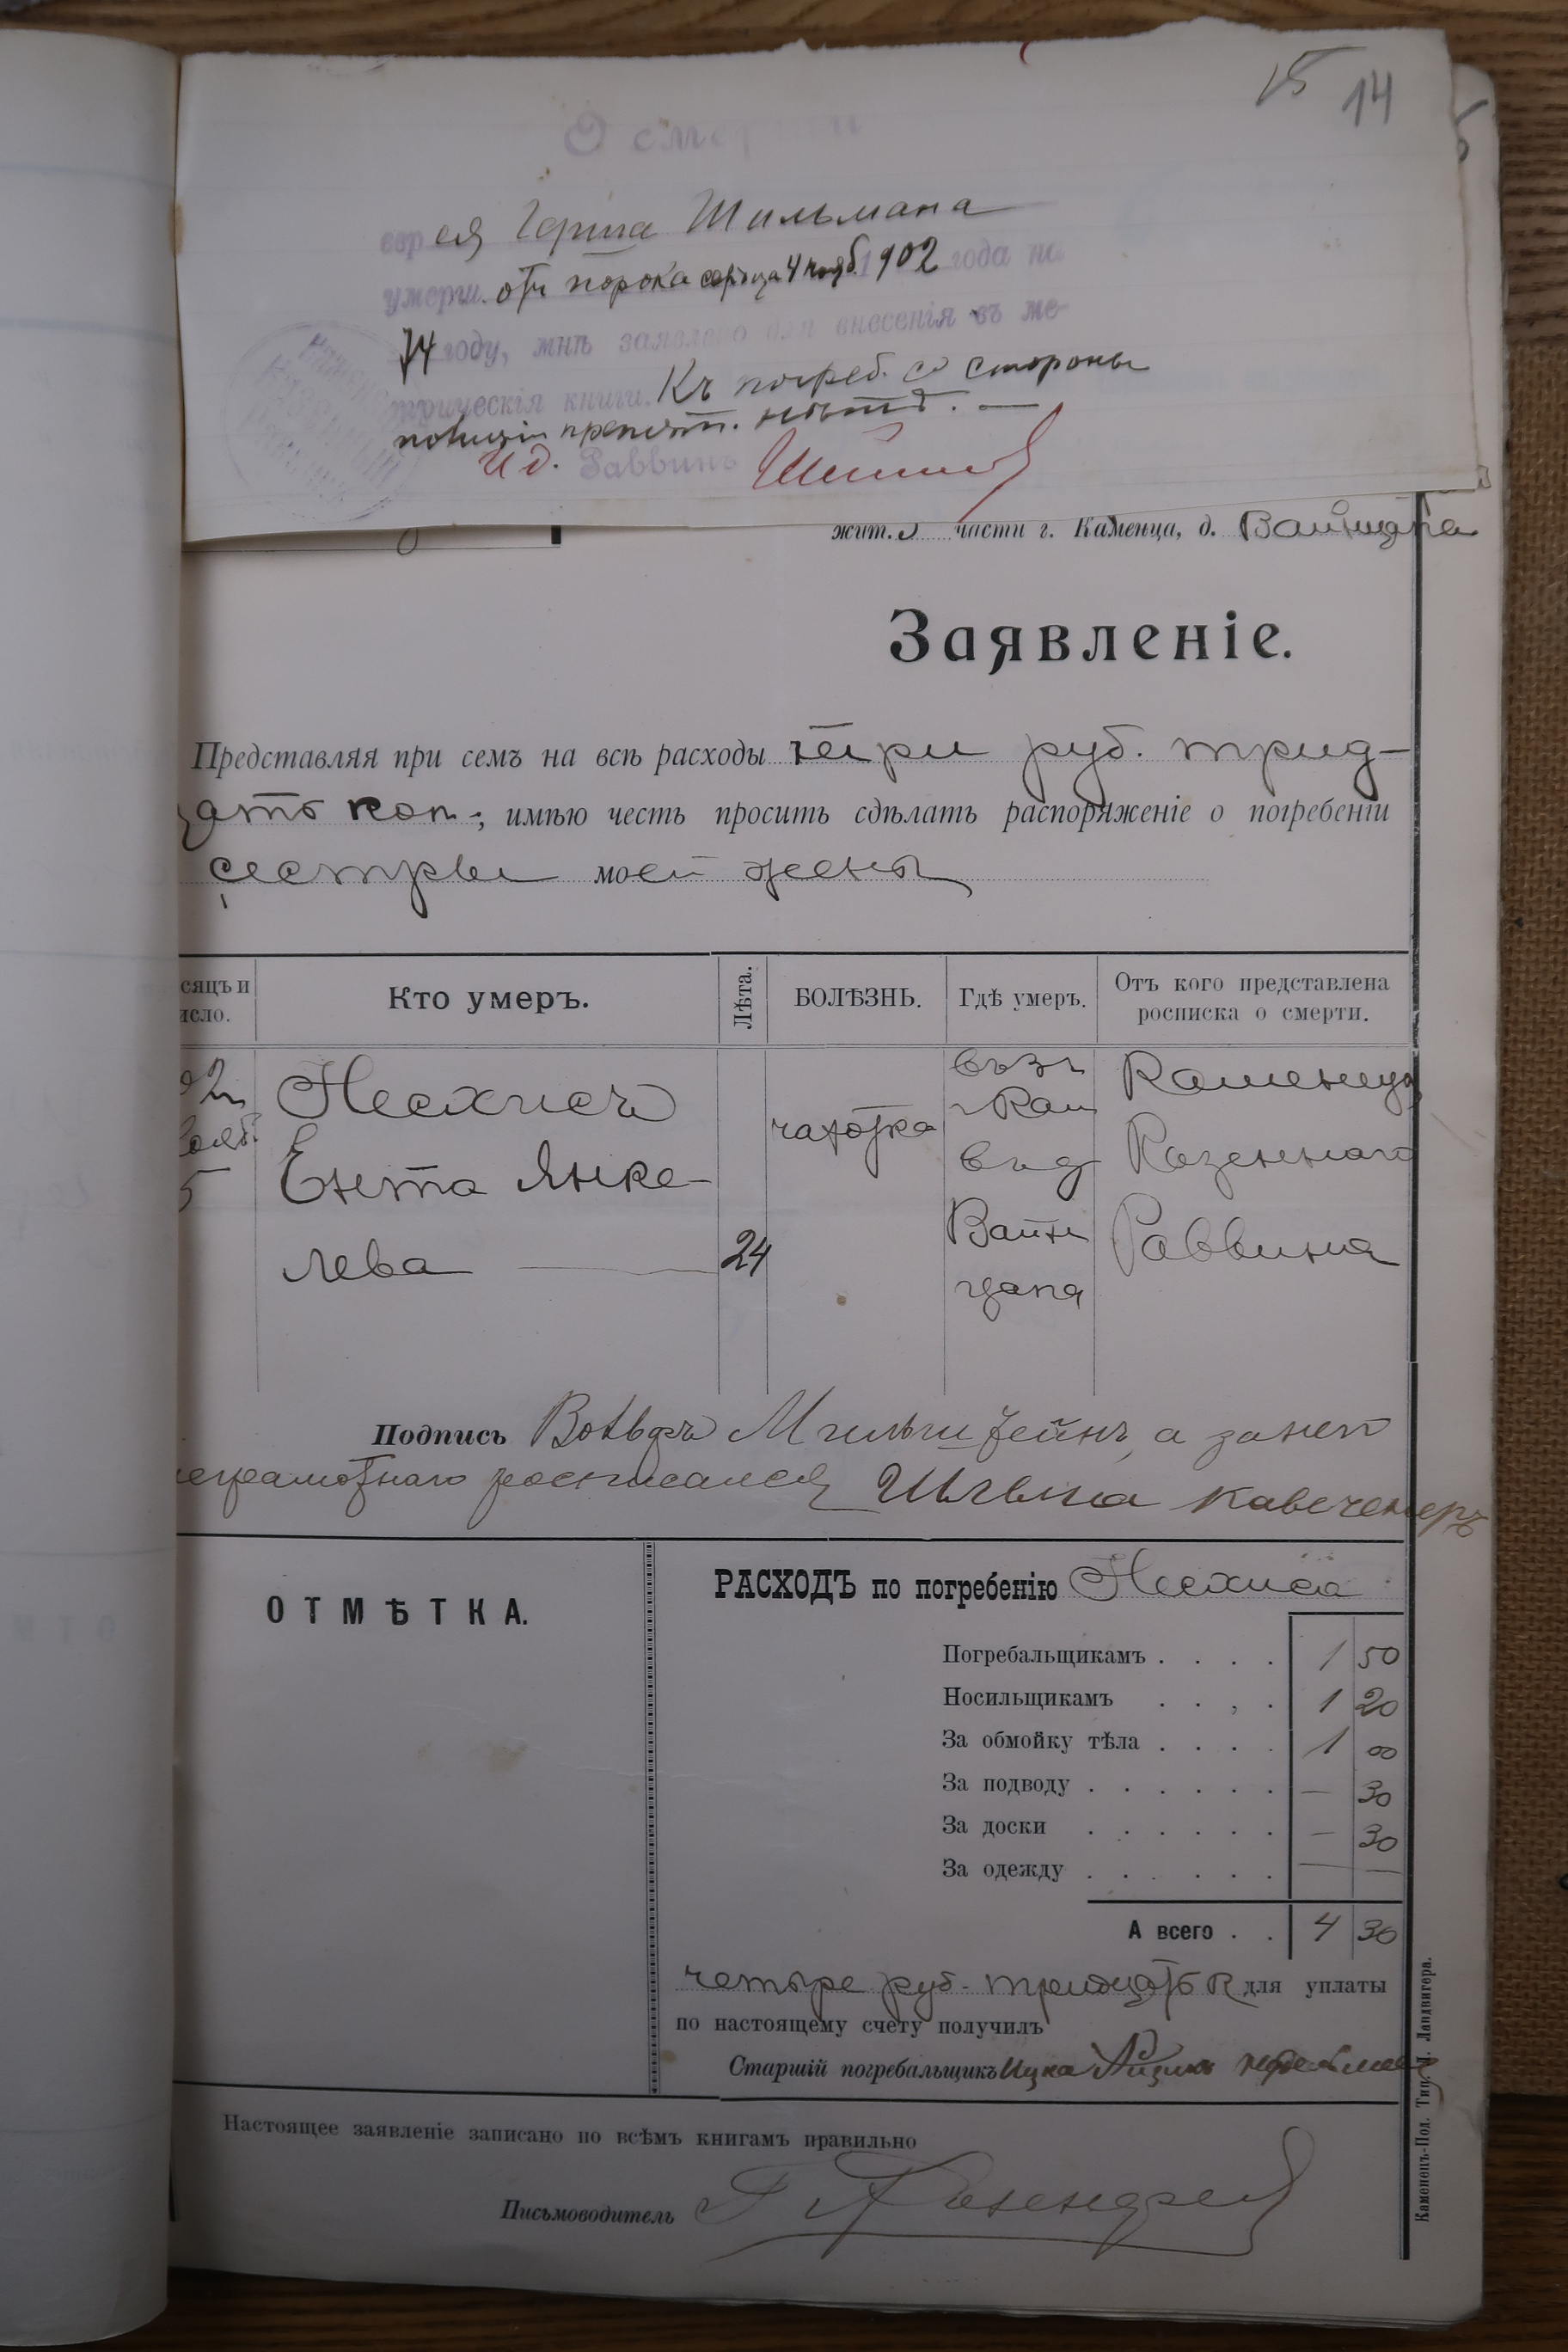 15 14
О смерти
еврея Герша Шильмана
умерш. отъ порока сердца 4 нояб. 1902 года на
74 году, мнѣ заявлено для внесенія въ ме-
трическія книги. Къ погреб. со стороны
полиціи препятст. нѣтъ. —
И д. Раввинъ
жит. 3 части г. Каменца, д. Вайнцапа
Заявленіе.
Представляя при семъ на всѣ расходы четри руб. трид-
цать коп.; имѣю честь просить сдѣлать распоряженіе о погребеніи
сестры моей жены
сяцъ и
исло.
Кто умеръ.
Лѣта.
БОЛѢЗНЬ.
Гдѣ умеръ.
Отъ кого представлена
росписка о смерти.
02
нояб.
5
Несхисъ
Ента Янке-
лева
24
чахотка
въ з ч
г. Кам
въ д
Вайн
цапа
Каменецъ
Казеннаго
Раввина
Подпись Вольфъ Мильштейнъ, а за него
неграмотнаго росписался Шлема
ОТМѢТКА.
РАСХОДЪ по погребенію Несхиса
Погребальщикамъ . . . . 1 50
Носильщикамъ . . , . 1 20
За обмойку тѣла . . . . 1 00
За подводу . . . . . . — 30
За доски . . . . . . — 30
За одежду . . . . . . — —
А всего . . 4 30
четыре руб. тридцать к для уплаты
по настоящему счету получилъ
Старшій погребальщикъ Ицко
Настоящее заявленіе записано по всѣмъ книгамъ правильно
Письмоводитель
Каменецъ-Под. Тип. Л. Ландвигера.